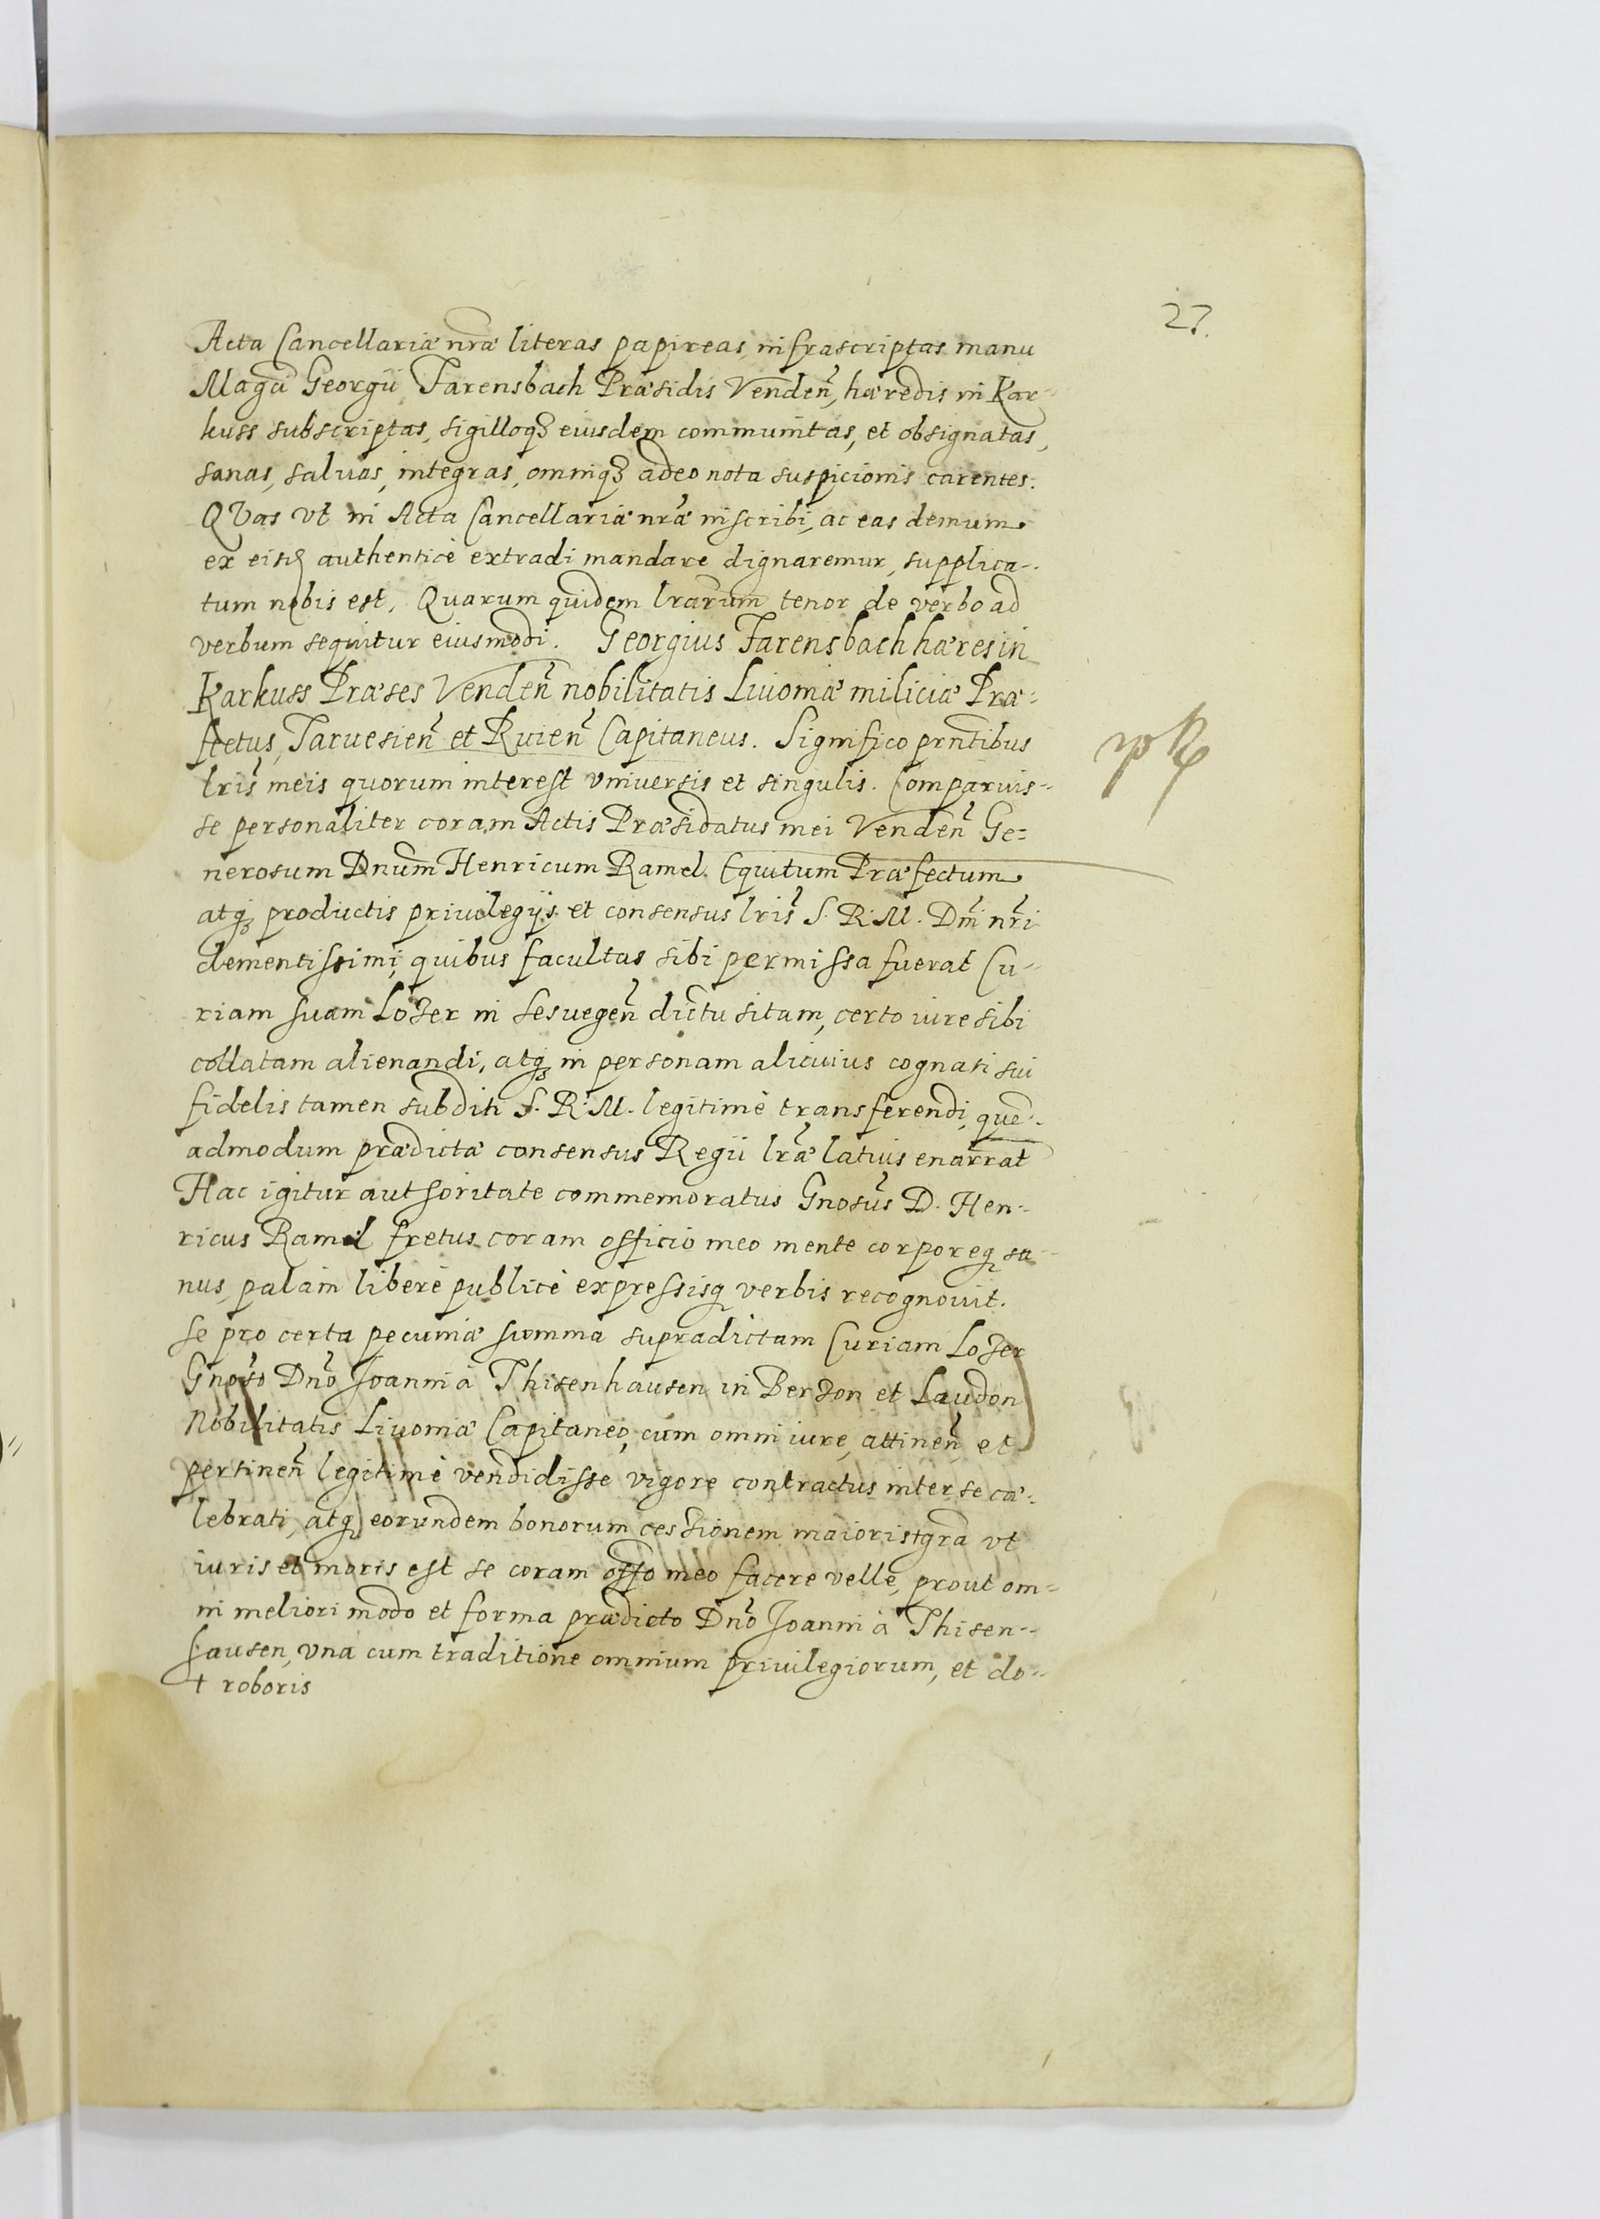 27.
Acta Cancellariæ nr̃æ literas papireas infrascriptas manu
Magci Georgii Farensbach Præsidis Venden̄, hæredis in Kar-
kuss subscriptas, sigilloqꝫ eiusdem communitas, et obsignatas,
sanas, saluas, integras, omniqꝫ adeo nota suspicionis carentes.
QVas vt in Acta Cancellariæ nr̃æ inscribi, ac eas demum
ex eisd authenticè extradi mandare dignaremur, supplica-
tum nobis est, Quarum quidem lrarum tenor de verbo ad
verbum sequitur eiusmodi. Georgius Farensbach hæres in
Karkuss Præses Venden̄ nobilitatis Liuoniæ miliciæ Præ-
fectus, Taruesien̄ et Ruien̄ Capitaneus. Significo prntibus
lris̃ meis quorum interest vniuersis et singulis. Comparuis-
se personaliter coram Actis Præsidatus mei Venden̄ Ge-
nerosum Dnum Henricum Ramel. Equitum Præfectum
atqꝫ productis priuilegijs et consensus lris̃ S. R. M. Dni nr̃i
clementissimi, quibus facultas sibi permissa fuerat Cu-
riam suam Lozer in Sesuegen̄ dictu sitam, certo iure sibi
collatam alienandi, atqꝫ in personam alicuius cognati sui
fidelis tamen subditi S. R. M. legitimè transferendi, que-
admodum prædictæ consensus Regii lræ latius enarrat
Hac igitur authoritate commemoratus Gnosus D. Hen-
ricus Ramel fretus coram officio meo mente corporeqꝫ sa-
nus, palàm liberè publicè expressisqꝫ verbis recognouit.
Se pro certa pecuniæ summa supradictam Curiam Lozer
Gnoso Dno Joanni à Thisenhausen in Berzon et Laudon
Nobilitatis Liuoniæ Capitaneo, cum omni iure, attinen̄, et
pertinen̄ legitimè vendidisse vigore contractus inter se cæ-
lebrati, atqꝫ eorundem bonorum cessionem maioris † gra vt
iuris et moris est se coram offo meo facere velle, prout om-
ni meliori modo et forma prædicto Dno Joanni à Thisen-
hausen, vna cum traditione omnium priuilegiorum, et do-
† roboris